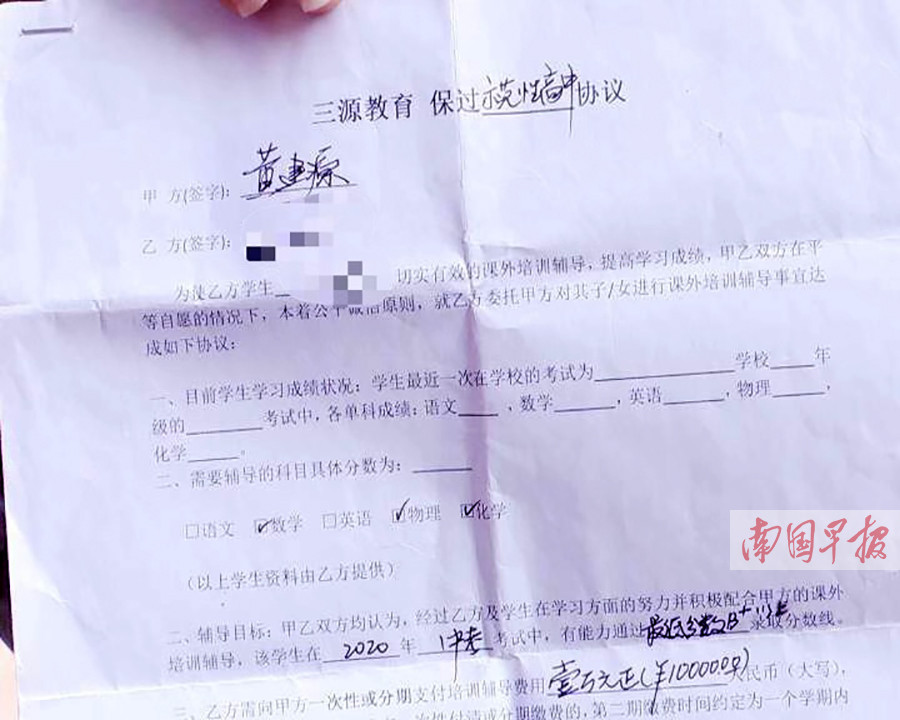 三源教育 保过示范性高中协议
甲 方(签字): 黄建源
乙 方(签字):
为使乙方学生 切实有效的课外培训辅导，提高学习成绩，甲乙双方在平
等自愿的情况下，本着公平诚信原则，就乙方委托甲方对其子/女进行课外培训辅导事宜达
成如下协议：
一、目前学生学习成绩状况：学生最近一次在学校的考试为____学校____年
级的____考试中，各单科成绩：语文____、数学____，英语____，物理____，
化学____。
二、需要辅导的科目具体分数为：____
□语文 ☑数学 □英语 ☑物理 ☑化学
（以上学生资料由乙方提供）
南国早报
二、辅导目标：甲乙双方均认为，经过乙方及学生在学习方面的努力并积极配合甲方的课外
培训辅导，该学生在 2020 年 中考 考试中，有能力通过最低分数为B+ 录取分数线。
三、乙方需向甲方一次性或分期支付培训辅导费用壹万元正(¥10000.0 人民币（大写），
一次性付清或分期缴费的，第二期缴费时间约定为一个学期内